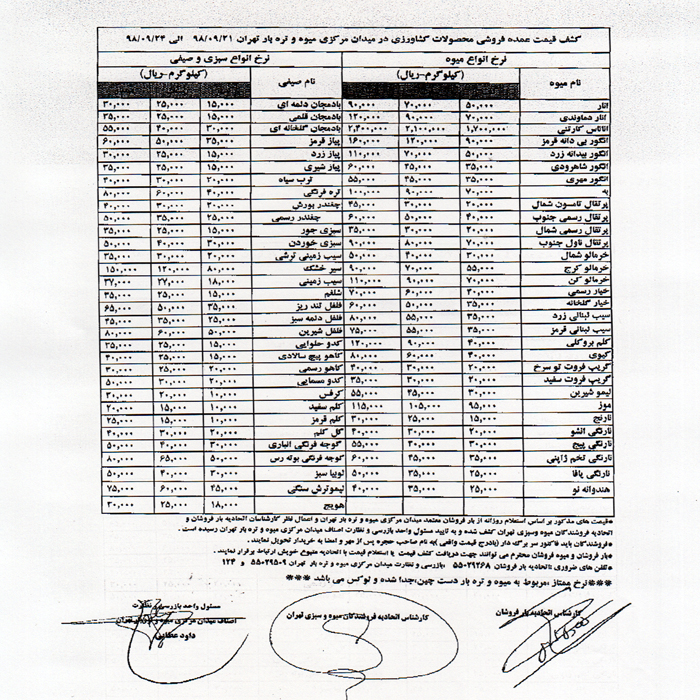 کشف قیمت عمده فروشی محصولات کشاورزی در میدان مرکزی میوه و تره بار تهران ۹۸/۰۹/۲۱ الی ۹۸/۰۹/۲۴
نرخ انواع میوه نرخ انواع سبزی و صیفی
نام میوه (کیلوگرم-ریال) نام صیفی (کیلوگرم-ریال)
انار ۵۰,۰۰۰ ۷۰,۰۰۰ ۹۰,۰۰۰ بادمجان دلمه ای ۱۵,۰۰۰ ۲۵,۰۰۰ ۳۰,۰۰۰
انار دماوندی ۷۰,۰۰۰ ۹۰,۰۰۰ ۱۲۰,۰۰۰ بادمجان قلمی ۱۵,۰۰۰ ۲۵,۰۰۰ ۳۵,۰۰۰
آناناس کارتنی ۱,۷۰۰,۰۰۰ ۲,۱۰۰,۰۰۰ ۲,۴۰۰,۰۰۰ بادمجان گلخانه ای ۳۰,۰۰۰ ۴۰,۰۰۰ ۵۵,۰۰۰
انگور بی دانه قرمز ۹۰,۰۰۰ ۱۲۰,۰۰۰ ۱۶۰,۰۰۰ پیاز قرمز ۳۵,۰۰۰ ۵۰,۰۰۰ ۶۰,۰۰۰
انگور بیدانه زرد ۵۰,۰۰۰ ۷۰,۰۰۰ ۱۱۰,۰۰۰ پیاز زرد ۱۵,۰۰۰ ۲۵,۰۰۰ ۳۰,۰۰۰
انگور شاهرودی ۳۵,۰۰۰ ۴۵,۰۰۰ ۶۰,۰۰۰ پیاز شیری ۱۵,۰۰۰ ۲۵,۰۰۰ ۳۵,۰۰۰
انگور مهری ۳۵,۰۰۰ ۴۵,۰۰۰ ۵۵,۰۰۰ ترب سیاه ۲۰,۰۰۰ ۳۰,۰۰۰ ۴۰,۰۰۰
به ۷۰,۰۰۰ ۹۰,۰۰۰ ۱۰۰,۰۰۰ تره فرنگی ۴۰,۰۰۰ ۶۰,۰۰۰ ۸۰,۰۰۰
پرتقال تامسون شمال ۲۰,۰۰۰ ۳۰,۰۰۰ ۴۵,۰۰۰ چغندر پورش ۲۰,۰۰۰ ۳۰,۰۰۰ ۴۰,۰۰۰
پرتقال رسمی جنوب ۴۰,۰۰۰ ۵۰,۰۰۰ ۶۰,۰۰۰ چغندر رسمی ۲۵,۰۰۰ ۳۵,۰۰۰ ۵۰,۰۰۰
پرتقال رسمی شمال ۲۰,۰۰۰ ۳۰,۰۰۰ ۳۵,۰۰۰ سبزی جور ۱۵,۰۰۰ ۲۵,۰۰۰ ۳۵,۰۰۰
پرتقال ناول جنوب ۷۰,۰۰۰ ۸۰,۰۰۰ ۹۰,۰۰۰ سبزی خوردن ۳۰,۰۰۰ ۴۰,۰۰۰ ۵۰,۰۰۰
خرمالو شمال ۳۰,۰۰۰ ۴۰,۰۰۰ ۵۰,۰۰۰ سیب زمینی ترشی ۲۰,۰۰۰ ۳۰,۰۰۰ ۳۵,۰۰۰
خرمالو کرج ۵۵,۰۰۰ ۷۰,۰۰۰ ۹۰,۰۰۰ سیر خشک ۸۰,۰۰۰ ۱۲۰,۰۰۰ ۱۵۰,۰۰۰
خرمالو کن ۷۰,۰۰۰ ۹۰,۰۰۰ ۱۱۰,۰۰۰ سیب زمینی ۱۸,۰۰۰ ۲۷,۰۰۰ ۳۷,۰۰۰
خیار رسمی ۴۰,۰۰۰ ۶۰,۰۰۰ ۷۰,۰۰۰ شلغم ۱۵,۰۰۰ ۲۵,۰۰۰ ۳۵,۰۰۰
خیار گلخانه ۳۵,۰۰۰ ۵۰,۰۰۰ ۶۰,۰۰۰ فلفل تند ریز ۳۵,۰۰۰ ۵۰,۰۰۰ ۶۵,۰۰۰
سیب لبنانی زرد ۳۵,۰۰۰ ۵۵,۰۰۰ ۸۰,۰۰۰ فلفل دلمه سبز ۲۵,۰۰۰ ۳۵,۰۰۰ ۴۵,۰۰۰
سیب لبنانی قرمز ۳۵,۰۰۰ ۵۵,۰۰۰ ۷۵,۰۰۰ فلفل شیرین ۵۰,۰۰۰ ۶۰,۰۰۰ ۸۰,۰۰۰
کلم بروکلی ۴۰,۰۰۰ ۹۰,۰۰۰ ۱۲۰,۰۰۰ کدو حلوایی ۱۵,۰۰۰ ۲۵,۰۰۰ ۳۵,۰۰۰
کیوی ۴۰,۰۰۰ ۶۰,۰۰۰ ۸۰,۰۰۰ کاهو پیچ سالادی ۱۵,۰۰۰ ۳۵,۰۰۰ ۴۰,۰۰۰
گریپ فروت تو سرخ ۲۰,۰۰۰ ۳۰,۰۰۰ ۴۰,۰۰۰ کاهو رسمی ۲۰,۰۰۰ ۳۰,۰۰۰ ۴۰,۰۰۰
گریپ فروت سفید ۲۰,۰۰۰ ۳۰,۰۰۰ ۳۵,۰۰۰ کدو مسمایی ۲۰,۰۰۰ ۳۰,۰۰۰ ۵۰,۰۰۰
لیمو شیرین ۳۰,۰۰۰ ۴۵,۰۰۰ ۵۵,۰۰۰ کرفس ۱۰,۰۰۰ ۲۰,۰۰۰ ۳۰,۰۰۰
موز ۹۵,۰۰۰ ۱۰۵,۰۰۰ ۱۱۵,۰۰۰ کلم سفید ۱۰,۰۰۰ ۱۵,۰۰۰ ۲۰,۰۰۰
نارنج ۱۵,۰۰۰ ۲۵,۰۰۰ ۳۰,۰۰۰ کلم قرمز ۱۰,۰۰۰ ۱۵,۰۰۰ ۲۵,۰۰۰
نارنگی انشو ۲۰,۰۰۰ ۳۰,۰۰۰ ۴۰,۰۰۰ گل کلم ۲۰,۰۰۰ ۳۰,۰۰۰ ۴۰,۰۰۰
نارنگی پیج ۳۰,۰۰۰ ۳۰,۰۰۰ ۵۵,۰۰۰ گوجه فرنگی انباری ۳۰,۰۰۰ ۴۰,۰۰۰ ۵۰,۰۰۰
نارنگی تخم ژاپنی ۲۵,۰۰۰ ۳۵,۰۰۰ ۴۰,۰۰۰ گوجه فرنگی بوته رس ۵۰,۰۰۰ ۶۵,۰۰۰ ۸۰,۰۰۰
نارنگی یافا ۲۵,۰۰۰ ۳۵,۰۰۰ ۵۰,۰۰۰ لوبیا سبز ۳۰,۰۰۰ ۴۰,۰۰۰ ۵۰,۰۰۰
هندوانه نو ۲۵,۰۰۰ ۳۵,۰۰۰ ۴۰,۰۰۰ لیموترش سنگی ۴۵,۰۰۰ ۶۰,۰۰۰ ۷۵,۰۰۰
هویج ۱۸,۰۰۰ ۲۵,۰۰۰ ۳۰,۰۰۰
*قیمت های مذکور بر اساس استعلام روزانه از بار فروشان معتمد میدان مرکزی میوه و تره بار تهران و اعمال نظر کارشناسان اتحادیه بار فروشان و
اتحادیه فروشندگان میوه وسبزی تهران کشف شده و به تایید مسئول واحد بازرسی و نظارت اصناف میدان مرکزی میوه و تره بار تهران رسیده است.
*فروشندگان باید فاکتور سر برگه دار (بادرج قیمت واقعی )به نام صاحب حجره پس از مهر و امضا به خریدار تحویل نمایند.
*بار فروشان و میوه فروشان محترم می توانند جهت دریافت کشف قیمت یا استعلام قیمت با اتحادیه متبوع خویش ارتباط برقرار نمایند.
*تلفن های ضروری :اتحادیه بار فروشان ۵۵۰۲۹۲۶۸ بازرسی و نظارت میدان مرکزی میوه و تره بار تهران ۵۵۰۲۹۵۰۹ و ۱۲۴
***نرخ ممتاز ،مربوط به میوه و تره بار دست چین،جدا شده و لوکس می باشد ***
کارشناس اتحادیه بار فروشان
کارشناس اتحادیه فروشندگان میوه و سبزی تهران
مسئول واحد بازرسی و نظارت
اصناف میدان مرکزی میوه و تره بار تهران
داود عطایی